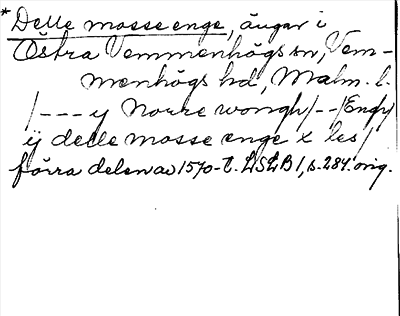 * Delle mosse enge, ängar i
Östra Vemmenhögs sn, Vem-
menhögs hd, Malm. l.
/--- y Norre wongh/--/Engh/
ÿ delle mosse enge x les/
förra delen av 1570-t. LSLB 1, s. 284. orig.